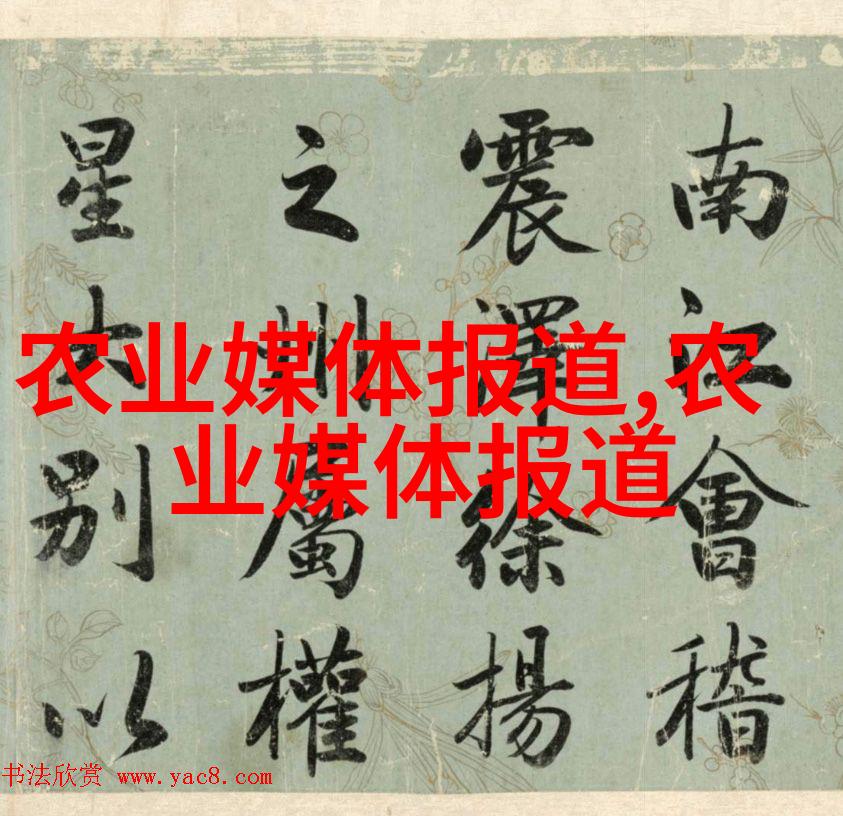 南江會稽
震澤徐揚
之州屬權
星土別以
农业媒体报道,农
业媒体报道
书法欣赏 www.yac8.com